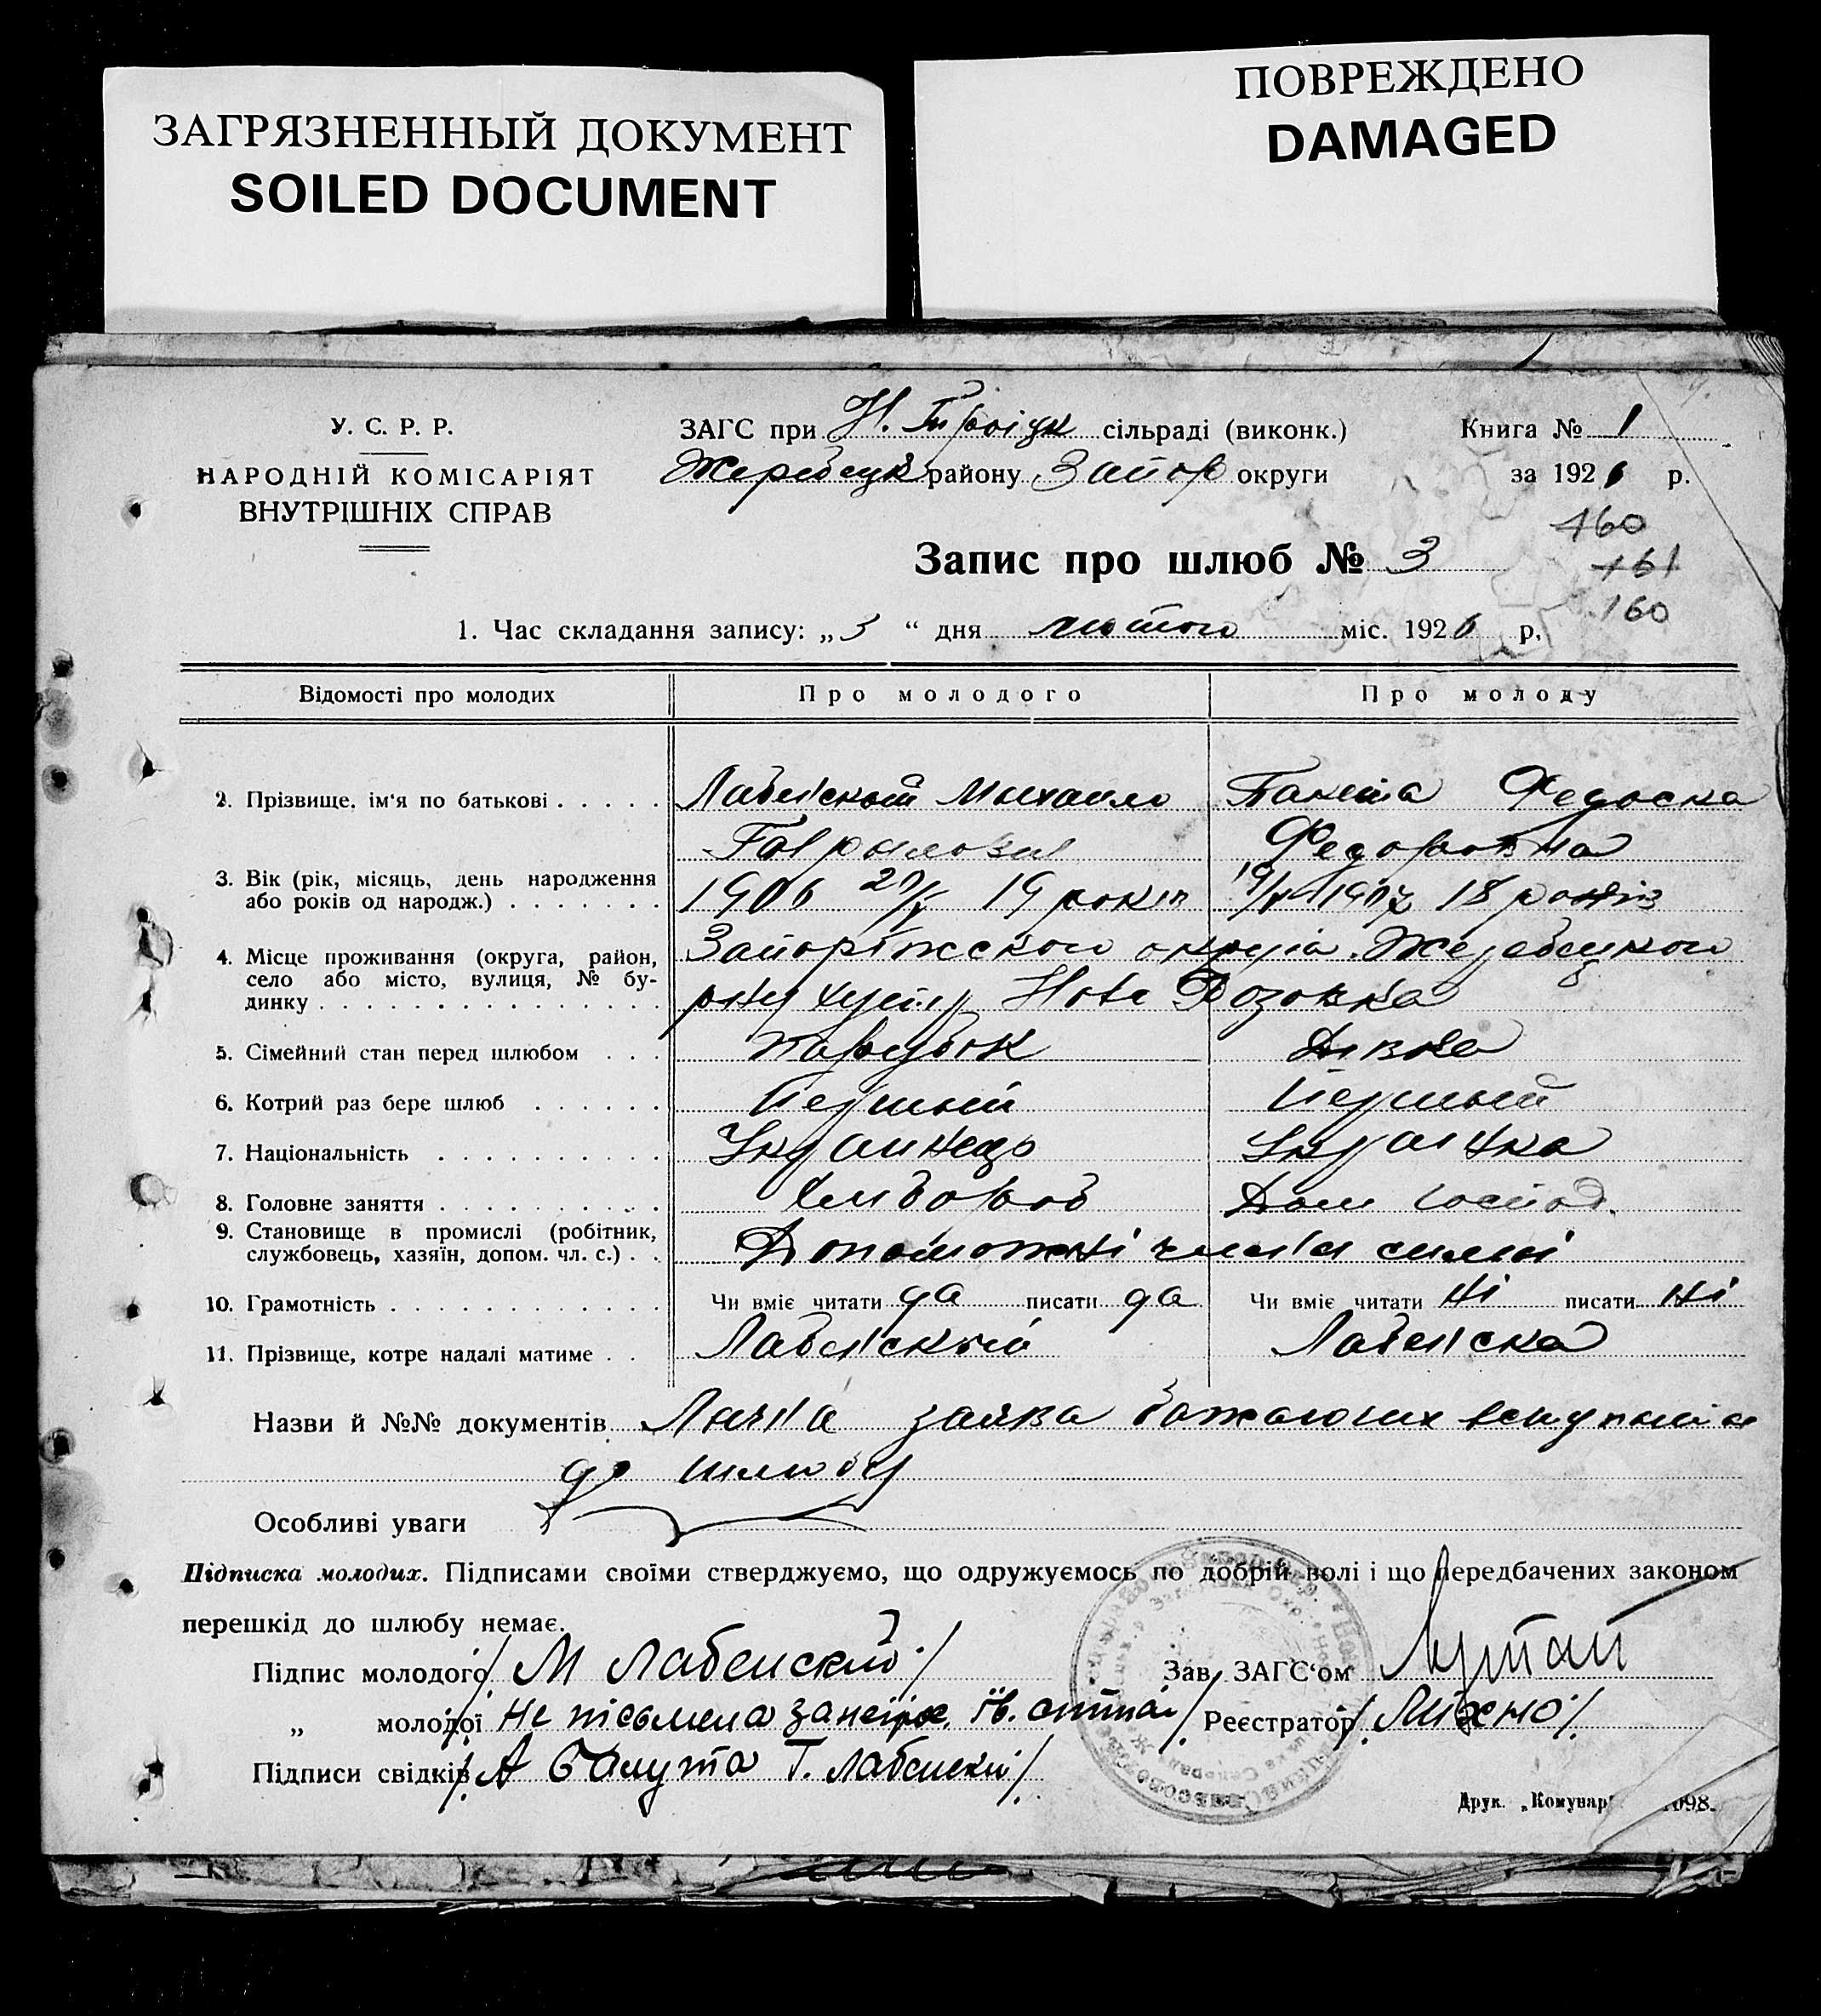 ЗАГРЯЗНЕННЫЙ ДОКУМЕНТ
SOILED DOCUMENT
ПОВРЕЖДЕНО
DAMAGED
У. С. Р. Р.
НАРОДНІЙ КОМІСАРІЯТ
ВНУТРІШНІХ СПРАВ
ЗАГС при Н. Троіцк сільраді (виконк.)
Жеребецк району Запор округи
Книга № 1
за 1926 р.
160
161
160
Запис про шлюб № 3
1. Час складання запису: „3“ дня лютого міс. 1926 р.
Відомості про молодих Про молодого Про молоду
2. Прізвище, ім'я по батькові Лабенский Михаило Федоска
Федоровна
3. Вік (рік, місяць, день народження
або років од народж.) 1906 19 років 1907 18 років
4. Місце проживання (округа, район,
село або місто, вулиця, № бу-
динку
Запоріжского округа Жеребецкого
Нова Розовка
5. Сімейний стан перед шлюбом парубок Дивка
6. Котрий раз бере шлюб Першый Першый
7. Національність Украинець Украинка
8. Головне заняття Хлибороб Дом господ.
9. Становище в промислі (робітник,
службовець, хазяїн, допом. чл. с.) Допоможні члени семьи
10. Грамотність Чи вміє читати да писати да Чи вміє читати ні писати ні
11. Прізвище, котре надалі матиме Лабенский Лабенска
Назви й №№ документів Лична заява бажаючих вступити
до шлюбу
Особливі уваги
Підписка молодих. Підписами своїми стверджуємо, що одружуємось по добрій волі і що передбачених законом
перешкід до шлюбу немає.
Підпис молодого / М Лабенский /
„ молодої Не письмена за неї
Підписи свідків / А Балута Г. Лабенский /
Зав. ЗАГС'ом
Реєстратор / Михно /
Друк. „Комунар 1098.